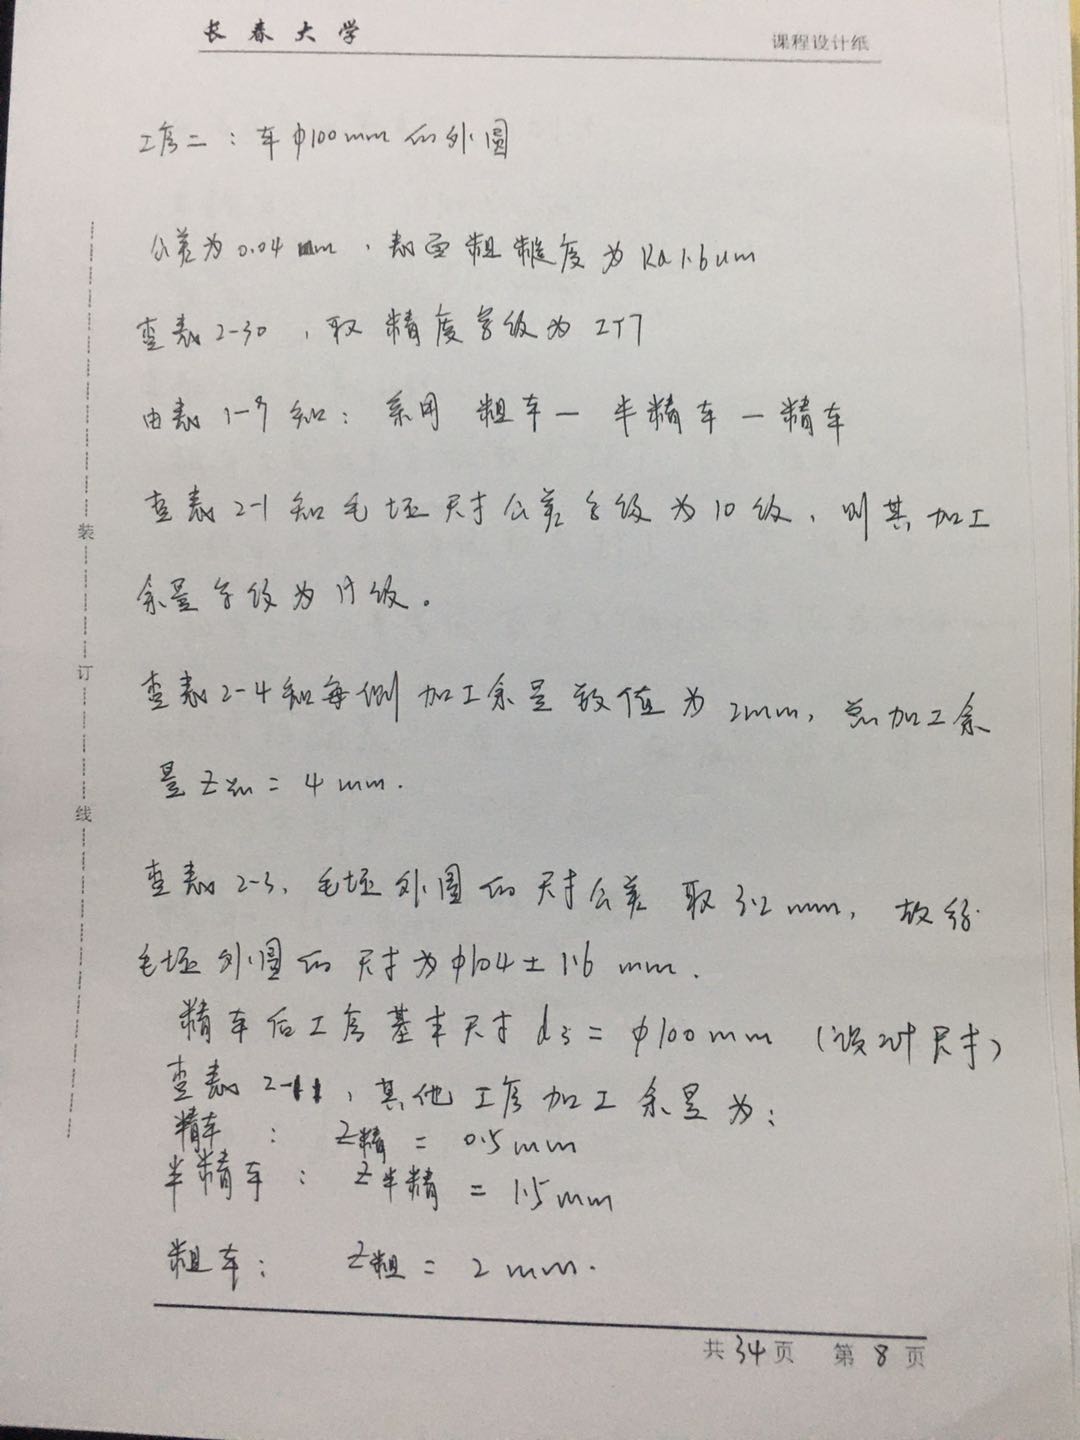 长春大学
课程设计纸
工序二：车φ100mm的外圆
公差为0.04mm，表面粗糙度为Ra1.6um
查表2-30，取精度等级为IT7
由表1-9知：采用 粗车－半精车－精车
装
查表2-1知毛坯尺寸公差等级为10级，则其加工
余量等级为 级。
订
查表2-4知每侧加工余量数值为2mm，总加工余
量Z总=4mm.
线
查表2-3，毛坯外圆的尺寸公差取3.2mm，故
毛坯外圆的尺寸为φ104±1.6mm.
精车后工序基本尺寸d3=φ100mm（设计尺寸）
查表2-11，其他工序加工余量为：
精车：Z精=0.5mm
半精车：Z半精=1.5mm
粗车：Z粗=2mm.
共34页 第8页